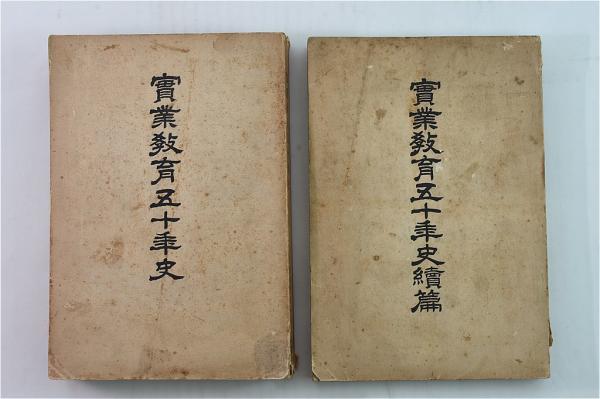 實業教育五十年史
實業教育五十年史續篇